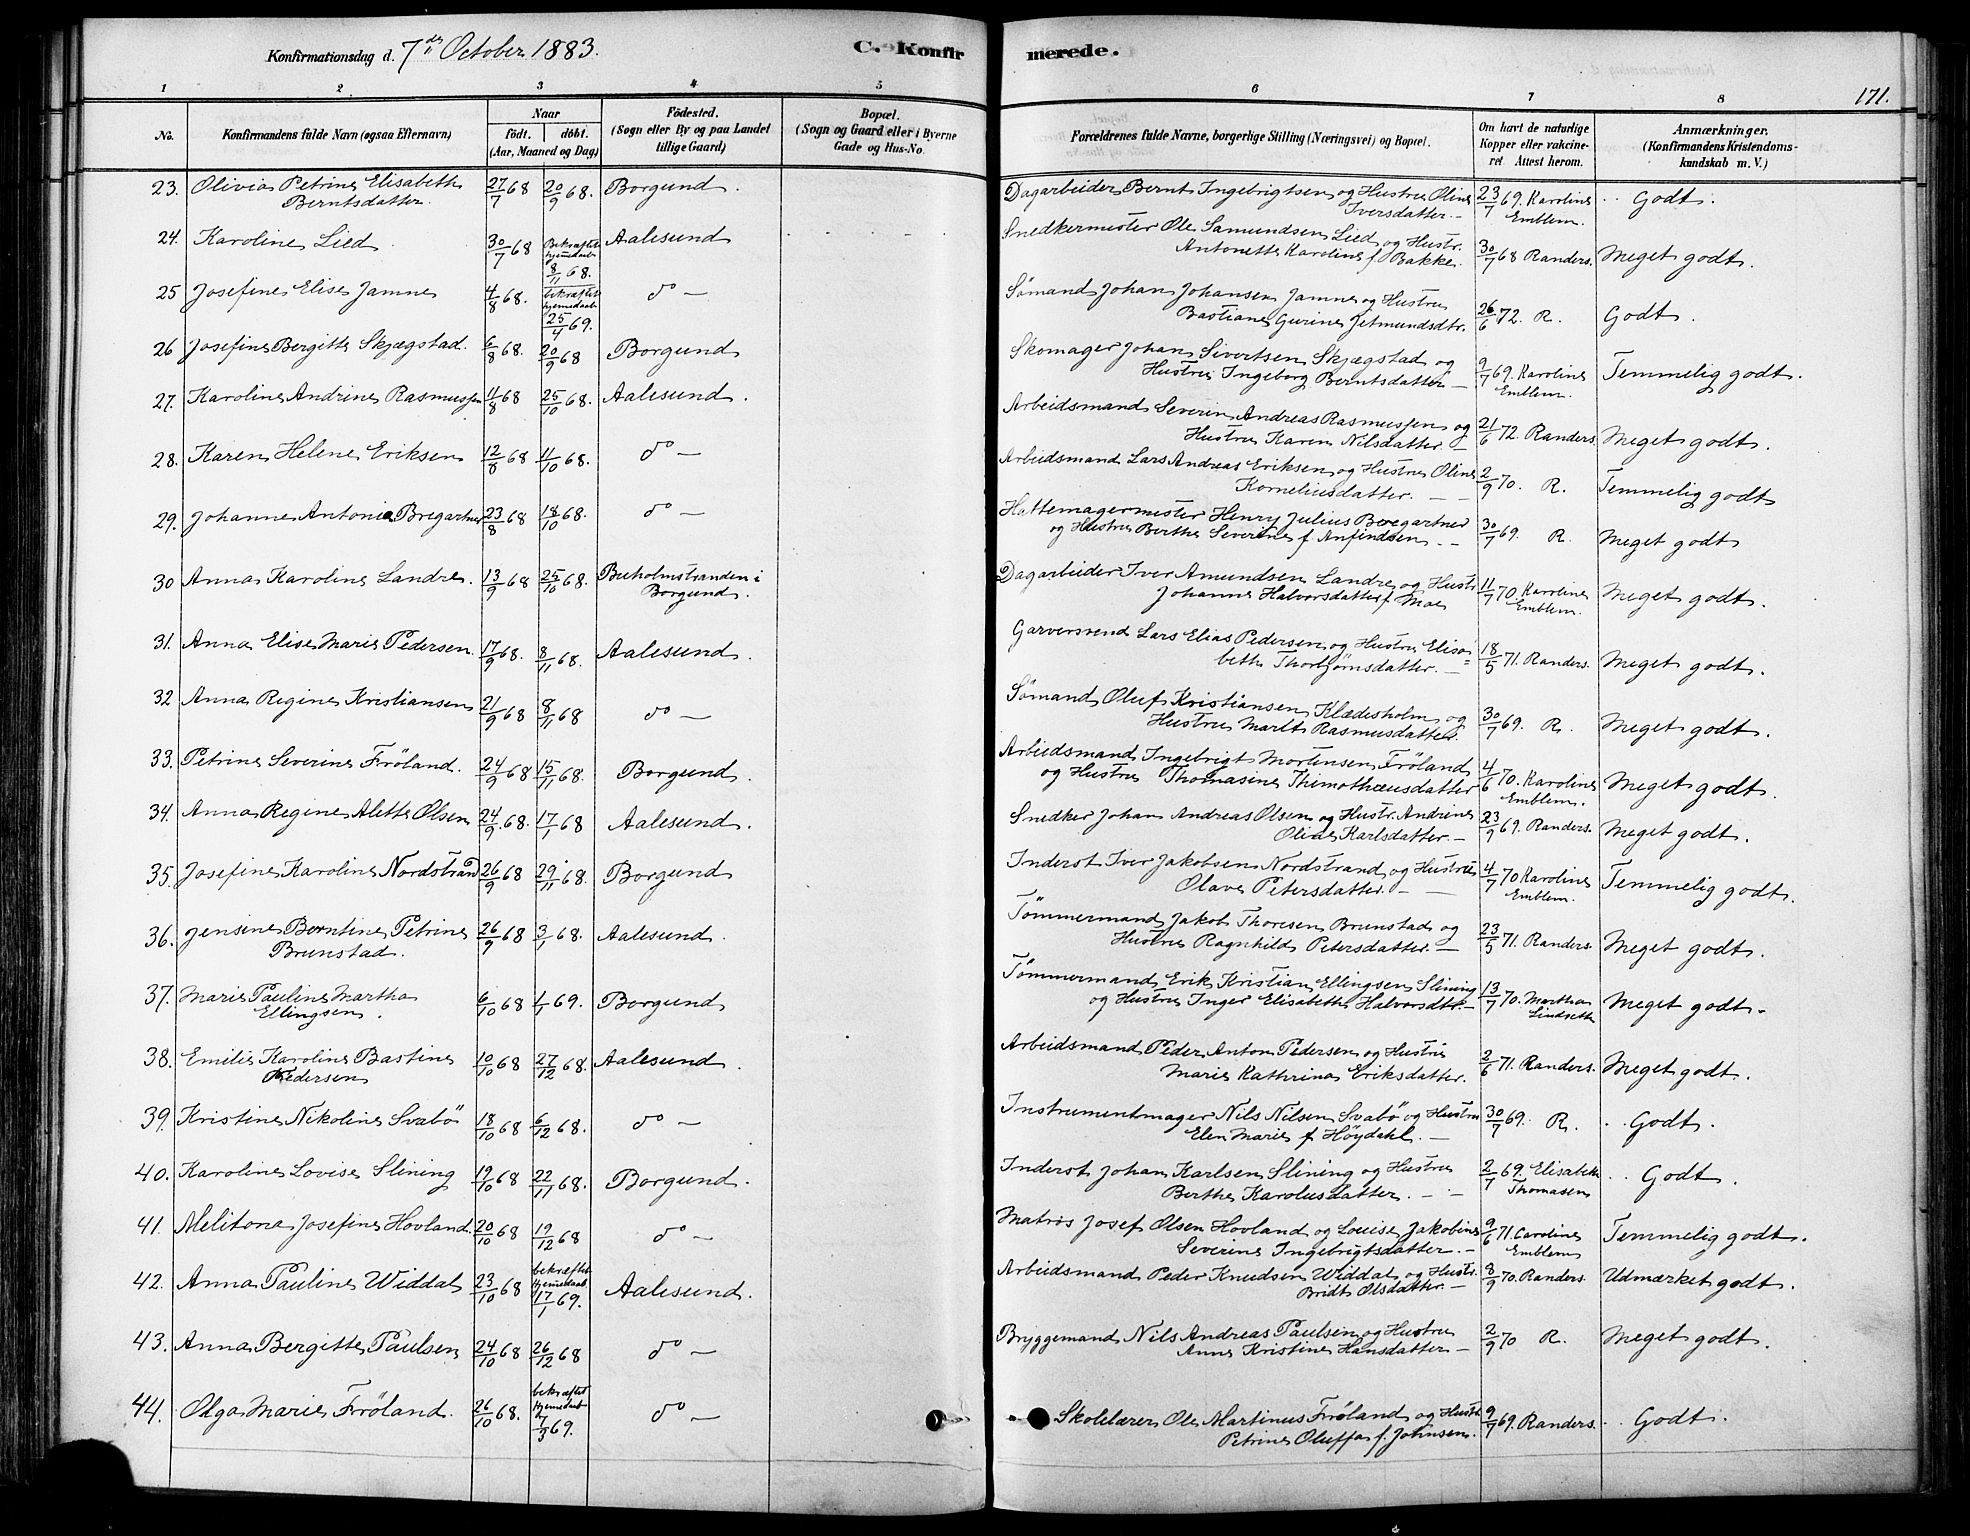 Konfirmationsdag d. 7de October 1883.
C. Konfirmerede.
171.
1 2 3 4 5 6 7 8
No.
Konfirmandens fulde Navn (ogsaa Efternavn)
Naar
födt. döbt.
(Aar, Maaned og Dag)
Födested.
(Sogn eller By og paa Landet
tillige Gaard)
Bopæl.
(Sogn og Gaard eller i Byerne
Gade og Hus-No.
Forældrenes fulde Navne, borgerlige Stilling (Næringsvei) og Bopæl.
Om havt de naturlige
Kopper eller vakcine-
ret. Attest herom.
Anmærkninger.
(Konfirmandens Kristendoms-
kundskab m. V.)
23. Olivia Petrine Elisabeth 27/7 68 20/9 68. Borgund. Dagarbeider Bernt Ingebrigtsen og Hustru Oline 23/7 69. Karoline Godt.
Berntsdatter. Iversdatter. Emblem.
24. Karoline Lied 30/7 68 Bekræftet hjemmedaab 8/11 68. Aalesund Snedkermester Ole Samundsen Lied og Hustr. 30/7 68 Randers. Meget godt.
Antonette Karoline f. Bakke.
25 Josefine Elise Jamne 4/8 68. bekræftet hjemmedaab 25/4 69. do — Sömand Johan Johansen Jamne og Hustru 26/6 72. R. Godt.
Bastiane Gurine Jetmundsdtr.
26 Josefine Bergitte Skjægstad. 6/8 68. 20/9 68 Borgund Skomager Johan Sivertsen Skjægstad og 9/7 69. Karoline Temmelig godt.
Hustru Ingeborg Berntsdatter — Emblem.
27. Karoline Andrine Rasmussen 11/8 68 25/10 68. Aalesund. Arbeidsmand Severin Andreas Rasmussen og 21/6 72. Randers. Meget godt.
Hustru Karen Nilsdatter.
28. Karen Helene Eriksen 12/8 68 11/10 68. do — Arbeidsmand Lars Andreas Eriksen og Hustru Oline 2/9 70. R. Temmelig godt
Korneliusdatter. —
29. Johanne Antonia Bregartner 23/8 68 18/10 68. do — Hattemagermester Henry Julius Bregartner 30/7 69. R. Meget godt
og Hustru Berthe Severine f. Anfindsen. —
30 Anna Karoline Landre. 13/9 68 25/10 68. Buholmstranden i Dagarbeider Iver Amundsen Landre og Hustr. 11/7 70. Karoline Meget godt.
Borgund. Johanne Halvorsdatter f. Moe Emblem.
31. Anna Elise Marie Pedersen. 17/9 68. 8/11 68. Aalesund. Garversvend Lars Elias Pedersen og Hustru Elisa= 18/5 71. Randers. Meget godt.
beth Thorbjörnsdatter. —
32 Anna Regine Kristiansen 21/9 68 8/11 68 do — Sömand Oluf Kristiansen Klædesholm og 30/7 69. R. Meget godt.
Hustru Marte Rasmusdatter.
33. Petrine Severine Fröland. 24/9 68 15/11 68. Borgund. Arbeidsmand Ingebrigt Mortensen Fröland 4/6 70. Karoline Meget godt.
og Hustru Thomasine Thimothæusdatter Emblem.
34. Anna Regine Alette Olsen 24/9. 68. 17/1 68 Aalesund. Snedker Johan Andreas Olsen og Hustr. Andrine 23/9 69. Randers. Meget godt.
Oline Karlsdatter. —
35. Josefine Karoline Nordstrand 26/9 68 29/11 68. Borgund Inderst Iver Jakobsen Nordstrand og Hustru 4/7 70 Karoline Temmelig godt.
Olave Petersdatter. — Emblem.
36. Jensine Berntine Petrine 26/9 68 3/1 68. Aalesund. Tömmermand Jakob Thoresen Brunstad og 23/5 71. Randers. Meget godt.
Brunstad. Hustru Ragnhild Petersdatter. —
37. Marie Pauline Martha 6/10 68 1/1 69. Borgund Tömmermand Erik Kristian Ellingsen Slining 13/7 70. Martha Meget godt.
Ellingsen. og Hustru Inger Elisabeth Halvorsdtr. — Lindseth
38. Emilie Karoline Bastine 10/10 68 27/12 68. Aalesund. Arbeidsmand Peder Anton Pedersen og Hustru 2/6 71. Randers. Meget godt.
Pedersen Marie Kathrina Eriksdatter.
39. Kristine Nikoline Svabö 18/10 68 6/12 68. do — Instrumentmager Nils Nilsen Svabö og Hustru 30/7 69. R. Godt.
Elen Marie f. Höydahl. —
40. Karoline Lovise Slining 19/10 68 22/11 68. Borgund. Inderst Johan Karlsen Slining og Hustru 2/7 69. Elisabeth Godt.
Berthe Karolusdatter. — Thomasen
41. Melitona Josefine Hovland. 20/10 68 19/12 68 do — Matros Josef Olsen Hovland og Louise Jakobine 9/6 71. Caroline Temmelig godt.
Severine Ingebrigtsdatter. — Emblem
42. Anna Pauline Widdal 23/10 68 bekræftet Hjemmedaab 17/1 69. Aalesund. Arbeidsmand Peder Knudsen Widdal og Hustr. 8/9 70. Randers. Udmærket godt.
Bridt Olsdatter. —
43. Anna Bergitte Paulsen 24/10 68 26/12 68 do — Bryggemand Nils Andreas Paulsen og Hustru 2/9 70 R. Meget godt.
Anne Kristine Hansdatter —
44. Olga Marie Fröland. 26/10 68. bekræftet Hjemmedaab 7/3 69. do — Skolelærer Ole Martinus Fröland og Hustr. 9/7 69. Randers. Godt.
Petrine Oluffa f. Johnsen.